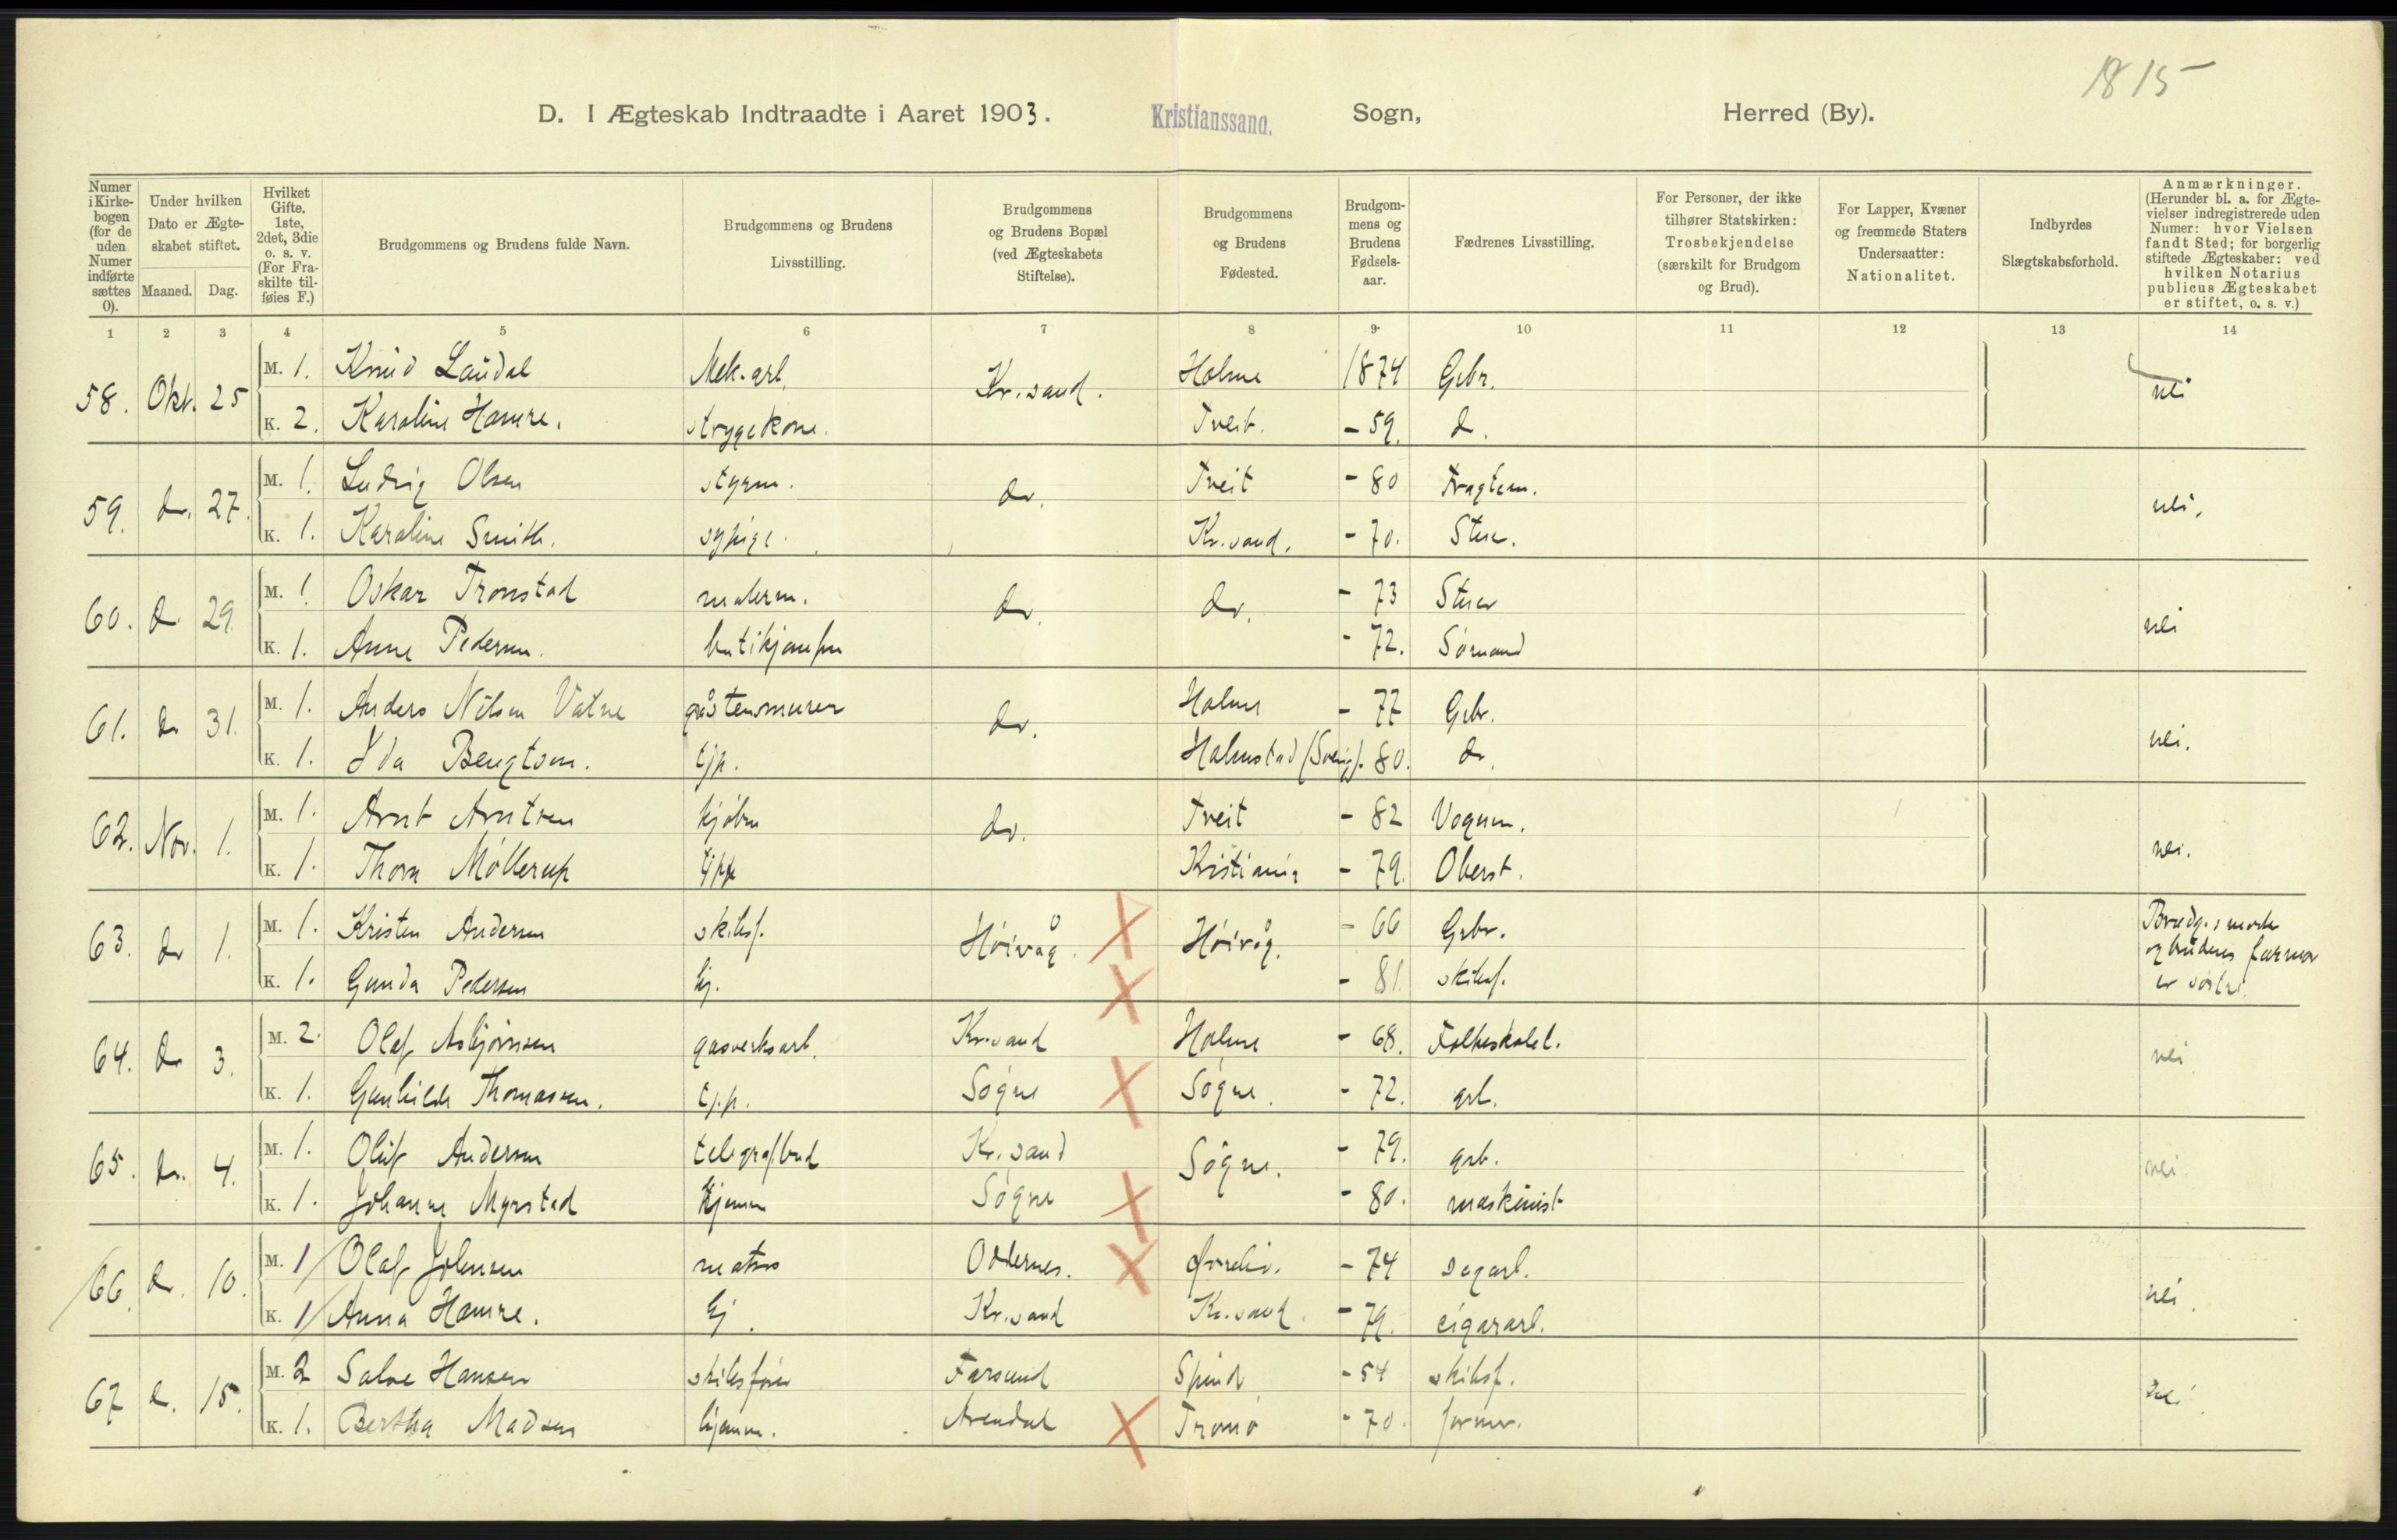 1815
D. I Ægteskab Indtraadte i Aaret 1903. Kristianssand. Sogn, Herred (By).
Numer i Kirkebogen (for de uden Numer indførte sættes 0).
Under hvilken Dato er Ægteskabet stiftet.
Maaned. Dag.
Hvilket Gifte. 1ste, 2det, 3die o. s. v. (For Fraskilte tilføies F.)
Brudgommens og Brudens fulde Navn.
Brudgommens og Brudens Livsstilling.
Brudgommens og Brudens Bopæl (ved Ægteskabets Stiftelse).
Brudgommens og Brudens Fødested.
Brudgommens og Brudens Fødselsaar.
Fædrenes Livsstilling.
For Personer, der ikke tilhører Statskirken: Trosbekjendelse (særskilt for Brudgom og Brud).
For Lapper, Kvæner og fremmede Staters Undersaatter: Nationalitet.
Indbyrdes Slægtskabsforhold.
Anmærkninger. (Herunder bl. a. for Ægtevielser indregistrerede uden Numer: hvor Vielsen fandt Sted; for borgerlig stiftede Ægteskaber: ved hvilken Notarius publicus Ægteskabet er stiftet, o. s. v.)
1 2 3 4 5 6 7 8 9 10 11 12 13 14
58. Okt. 25 M. 1. Knud Laudal Mek. arb. Kr.sand. Holme 1874 Gbr. nei
K. 2. Karoline Hamre. strygekone. Tveit. - 59. d.
59. do. 27. M. 1. Ludvig Olsen styrm. do. Tveit - 80 Fragtem. nei.
K. 1. Karoline Smith. sypige. Kr.sand. - 70. Stuer.
60. do 29. M. 1. Oskar Tronstad malerm. do. do. - 73 Stuer nei
K. 1. Anne Pedersen. butikjomfru - 72. Sømand
61. do 31. M. 1. Anders Nilsen Vatne gråstensmurer do. Holme - 77 Gbr. nei.
K. 1. Ida Bengtson. tjp. Halmstad (Sverig). 80. do.
62. Nov. 1. M. 1. Arnt Arntsen kjøbm do. Tveit - 82 Vognm. nei.
K. 1. Thora Møllerup tjp Kristiania - 79. Oberst.
63. do 1. M. 1. Kristen Andersen skibsf. Høivåg. Høivåg. - 66 Gbr. Brudg.s moder
og brudens farmor
er søstre.
K. 1. Gunda Pedersen hj. - 81 skibsf.
64. do 3. M. 2. Olaf Asbjørnsen gasverksarb. Kr.sand Holme - 68. Folkeskolel. nei
K. 1. Gunhilde Thomassen. tj.p. Søgne Søgne. - 72. arb.
65. do. 4. M. 1. Oluf Andersen telegrafbud Kr.sand Søgne. - 79. arb. nei
K. 1. Johanne Myrstad hjemme Søgne - 80. maskinist
66. do. 10. M. 1 Olaf Johnsen matros Oddernes. - 74 sagarb. nei.
K. 1 Anna Hamre. hj. Kr.sand Kr.sand. - 79. cigararb.
67 d. 15. M. 2 Salve Hansen skibsfører Farsund Spind - 54 skibsf. nei
K. 1. Bertha Madsen hjemme. Arendal Tromø - 70. former.